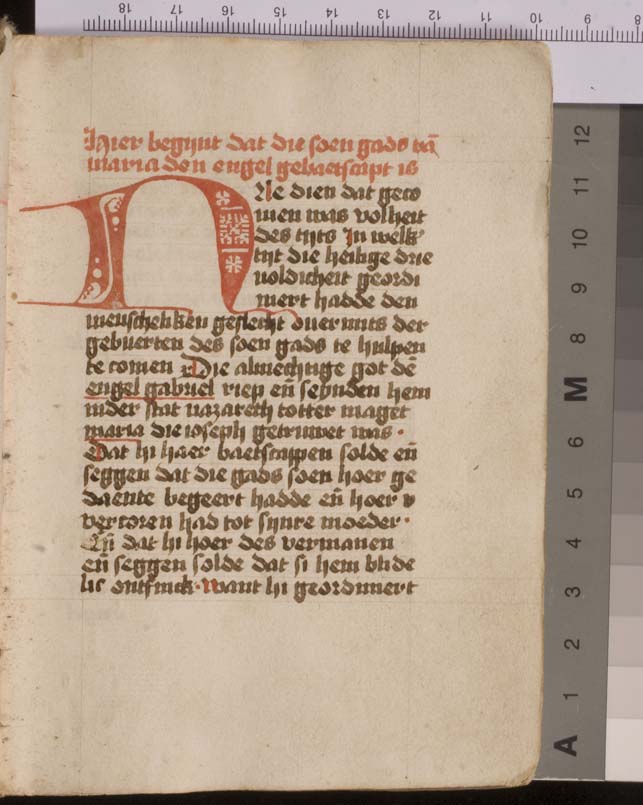 Hier begijnt dat die soen gads vā
maria den engel gebaetscapt is
Ne dien dat geco
men was volheit
des tijts In welk'
tijt die heilige drie
uoldicheit geordi
niert hadde den
menscheliken geslecht ouermits der
gebuerten des soen gads te hulpen
te comen Die almechtige got dē
engel gabriel riep eñ seynden hem
inder stat nazareth totter maget
maria die ioseph getruwet was ·
Dat hi haer baetscappen solde eñ
seggen dat die gads soen hoer ge
daente begeert hadde eñ hoer v
vercoren had tot sijnre moeder ·
Eñ dat hi hoer des vermanen
eñ seggen solde dat si hem blide
lic ontfinck · want hi geordiniert
18 17 16 15 14 13 12 11 10 9 8
12 11 10 9 8 M 6 5 4 3 2 1 A